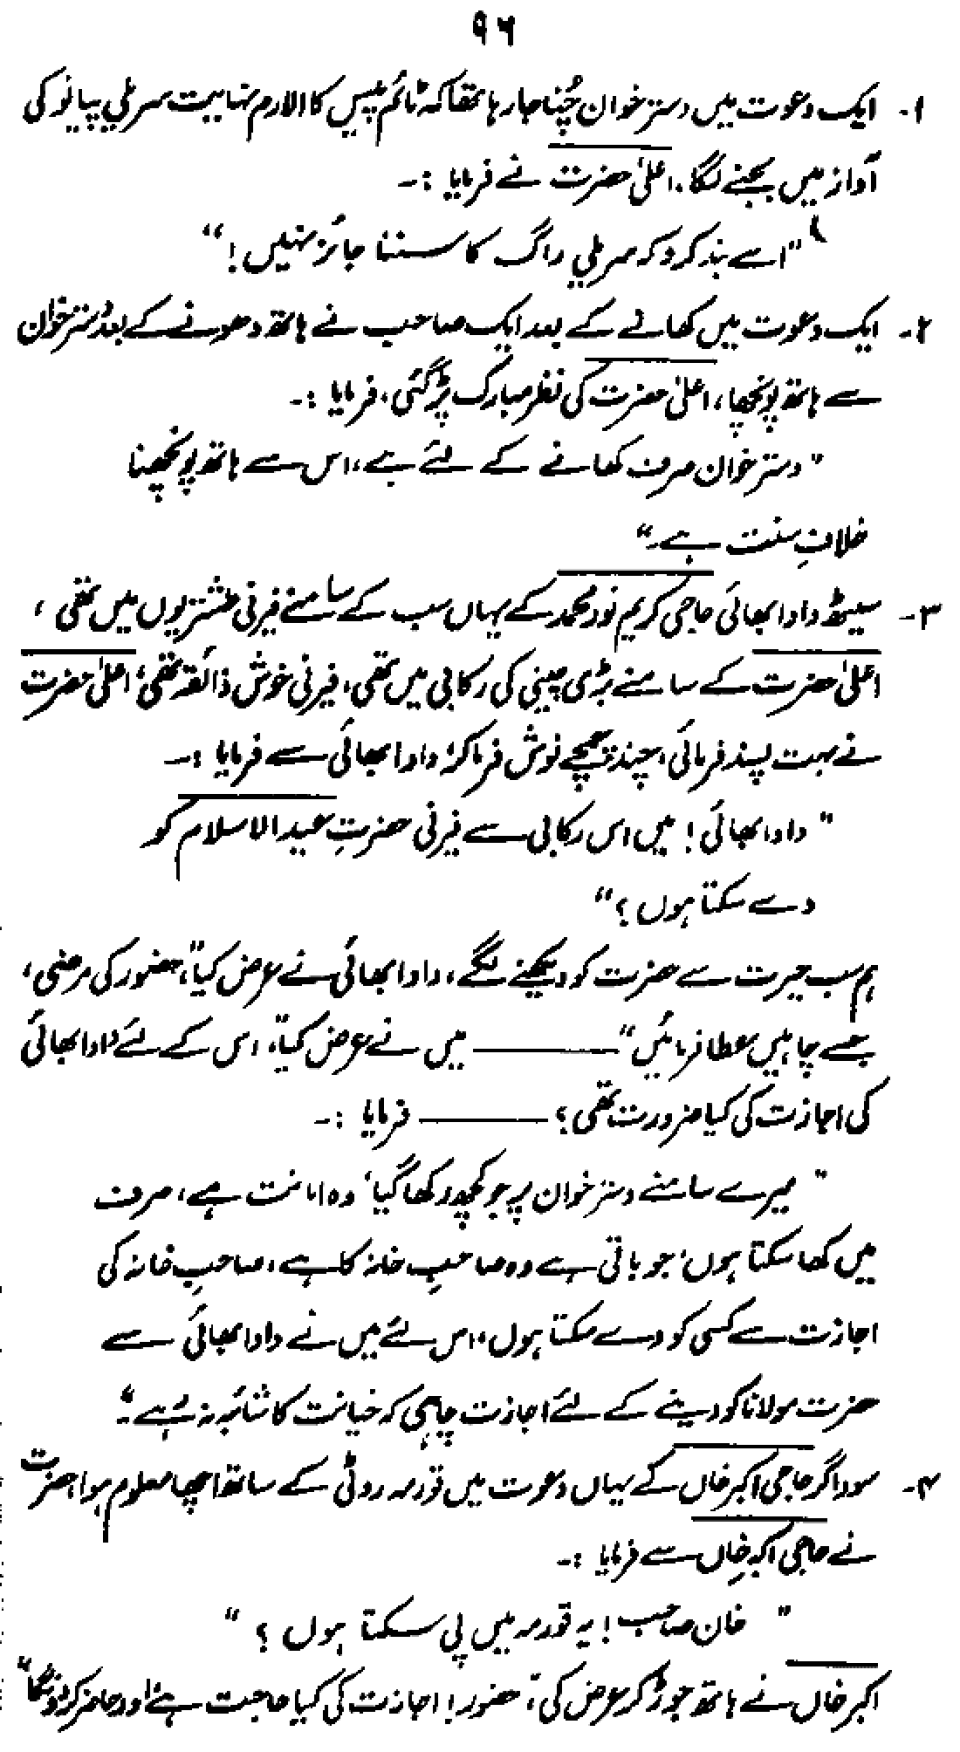 ۹۶
۱- ایک دعوت میں دسترخوان چُنا جارہا تھا کہ ٹائم پیس کا الارم نہایت سریلی پیانو کی
آواز میں بجنے لگا، اعلیٰ حضرت نے فرمایا :-
"اسے بند کرو کہ سریلی راگ کا سننا جائز نہیں!"
۲- ایک دعوت میں کھانے کے بعد ایک صاحب نے ہاتھ دھونے کے بعد دسترخوان
سے ہاتھ پونچھا، اعلیٰ حضرت کی نظر مبارک پڑ گئی، فرمایا :-
"دسترخوان صرف کھانے کے لئے ہے، اس سے ہاتھ پونچھنا
خلافِ سنت ہے۔"
۳- سیٹھ دادا بھائی حاجی کریم نور محمد کے یہاں سب کے سامنے فیرنی طشتریوں میں تھی،
اعلیٰ حضرت کے سامنے بڑی چینی کی رکابی میں تھی، فیرنی خوش ذائقہ تھی، اعلیٰ حضرت
نے بہت پسند فرمائی، چند چمچے نوش فرما کر، دادا بھائی سے فرمایا :-
"دادا بھائی! میں اس رکابی سے فیرنی حضرتِ عید الاسلام کو
دے سکتا ہوں؟"
ہم سب حیرت سے حضرت کو دیکھنے لگے، دادا بھائی نے عرض کیا، "حضور کی مرضی،
جسے چاہیں عطا فرمائیں" ——— میں نے عرض کیا، "اس کے لئے دادا بھائی
کی اجازت کی کیا ضرورت تھی؟ ——— فرمایا :-
"میرے سامنے دسترخوان پر جو کچھ رکھا گیا، وہ امانت ہے، صرف
میں کھا سکتا ہوں، جو باقی ہے وہ صاحبِ خانہ کا ہے، صاحبِ خانہ کی
اجازت سے کسی کو دے سکتا ہوں، اس لئے میں نے دادا بھائی سے
حضرت مولانا کو دینے کے لئے اجازت چاہی کہ خیانت کا شائبہ نہ رہے۔"
۴- سوداگر حاجی اکبر خاں کے یہاں دعوت میں قورمہ روٹی کے ساتھ اچھا معلوم ہوا، حضرت
نے حاجی اکبر خاں سے فرمایا :-
"خان صاحب! یہ قورمہ میں پی سکتا ہوں؟"
اکبر خاں نے ہاتھ جوڑ کر عرض کی، "حضور! اجازت کی کیا حاجت ہے، اور حاضر کر دونگا"